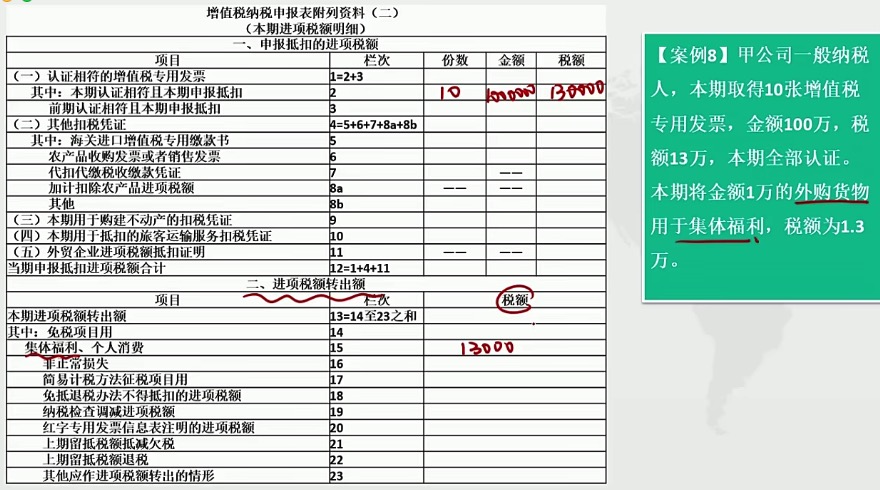 增值税纳税申报表附列资料（二）
（本期进项税额明细）
一、申报抵扣的进项税额
项目 栏次 份数 金额 税额
（一）认证相符的增值税专用发票 1=2+3
其中：本期认证相符且本期申报抵扣 2 10 1000000 130000
前期认证相符且本期申报抵扣 3
（二）其他扣税凭证 4=5+6+7+8a+8b
其中：海关进口增值税专用缴款书 5
农产品收购发票或者销售发票 6
代扣代缴税收缴款凭证 7 ——
加计扣除农产品进项税额 8a —— ——
其他 8b
（三）本期用于购建不动产的扣税凭证 9
（四）本期用于抵扣的旅客运输服务扣税凭证 10
（五）外贸企业进项税额抵扣证明 11 —— ——
当期申报抵扣进项税额合计 12=1+4+11
二、进项税额转出额
项目 栏次 税额
本期进项税额转出额 13=14至23之和
其中：免税项目用 14
集体福利、个人消费 15 13000
非正常损失 16
简易计税方法征税项目用 17
免抵退税办法不得抵扣的进项税额 18
纳税检查调减进项税额 19
红字专用发票信息表注明的进项税额 20
上期留抵税额抵减欠税 21
上期留抵税额退税 22
其他应作进项税额转出的情形 23
【案例8】甲公司一般纳税
人，本期取得10张增值税
专用发票，金额100万，税
额13万，本期全部认证。
本期将金额1万的外购货物
用于集体福利，税额为1.3
万。